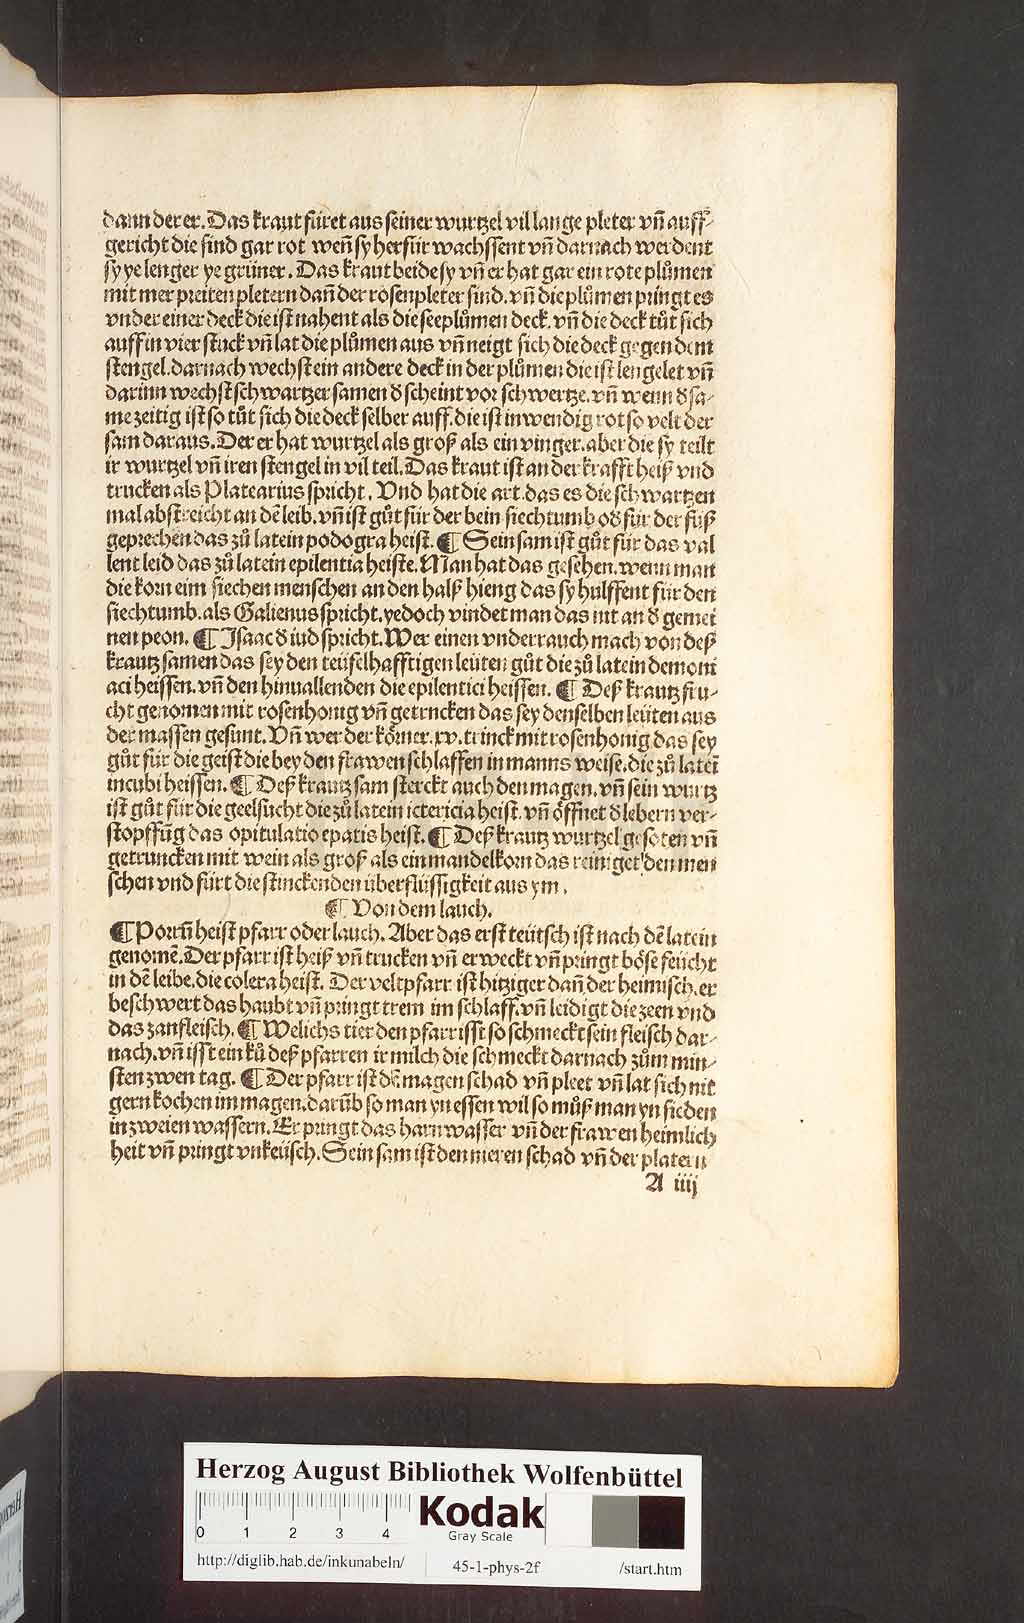 dann derer. Das kraut füret aus seiner wurtzel vil lange pleter vñ auff⸗
gericht die sind gar rot weñ sy herfür wachssent vñ darnach werdent
sy ye lenger ye grüner. Das kraut beide sy vñ er hat gar ein rote plůmen
mit mer preiten pletern dañ der rosenpleter sind. vñ die plůmen pringt es
vnder einer deck die ist nahent als die seeplůmen deck. vñ die deck tůt sich
auff in vier stuck vñ lat die plůmen aus vñ neigt sich die deck gegen dem
stengel. darnach wechst ein andere deck in der plůmen die ist lengelet vñ
darinn wechst schwartzer samen d̕ scheint vor schwertze. vñ wenn d̕ sa⸗
me zeitig ist so tůt sich die deck selber auff. die ist inwendig rot so velt der
sam daraus. Der er hat wurtzel als groß als ein vinger. aber die sy teilt
ir wurtzel vñ iren stengel in vil teil. Das kraut ist an der krafft heiß vnd
trucken als Platearius spricht. Vnd hat die art. das es die schwartzen
mal abstreicht an dē leib. vñ ist gůt für der bein siechtumb od̕ für der füß
geprechen das zů latein podogra heist. ¶ Sein sam ist gůt für das val
lent leid das zů latein epilentia heiste. Man hat das gesehen. wenn man
die korn eim siechen menschen an den halß hieng das sy hulffent für den
siechtumb. als Galienus spricht. yedoch vindet man das nit an d̕ gemei
nen peon. ¶ Isaac d̕ iud spricht. Wer einen vnderrauch mach von deß
krautz samen das sey den teüfelhafftigen leüten gůt die zů latein demoni
aci heissen. vñ den hinuallenden die epilentici heissen. ¶ Deß krautz fru⸗
cht genomen mit rosenhonig vñ getrncken das sey denselben leüten aus
der massen gesunt. Vñ wer der körner. xv. trinck mit rosenhonig das sey
gůt für die geist die bey den frawen schlaffen in manns weise. die zů lateī
incubi heissen. ¶ Deß krautz sam sterckt auch den magen. vñ sein wurtz
ist gůt für die geelsucht die zů latein ictericia heist. vñ öffnet d̕ lebern ver⸗
stopffūg das opitulatio epatis heist. ¶ Deß krautz wurtzel gesoten vñ
getruncken mit wein als groß als ein mandelkorn das reiniget den men
schen vnd fürt die stinckenden überflüssigkeit aus ym.
¶ Von dem lauch.
¶ Porrū heist pfarr oder lauch. Aber das erst teütsch ist nach dē latein
genomē. Der pfarr ist heiß vñ trucken vñ erweckt vñ pringt böse feücht
in dē leibe. die colera heist. Der veltpfarr ist hitziger dañ der heimisch. er
beschwert das haubt vñ pringt trem im schlaff. vñ leidigt die zeen vnd
das zanfleisch. ¶ Welichs tier den pfarr isst so schmeckt sein fleisch dar⸗
nach. vñ isst ein ků deß pfarren ir milch die schmeckt darnach zům min⸗
sten zwen tag. ¶ Der pfarr ist dē magen schad vñ pleet vñ lat sich nit
gern kochen im magen. darūb so man yn essen wil so můß man yn sieden
in zweien wassern. Er pringt das harnwasser vñ der frawen heimlich
heit vñ pringt vnkeüsch. Sein sam ist den nieren schad vñ der platern
A iiij
Herzog August Bibliothek Wolfenbüttel
0 1 2 3 4
Kodak
Gray Scale
http://diglib.hab.de/inkunabeln/ 45-1-phys-2f /start.htm